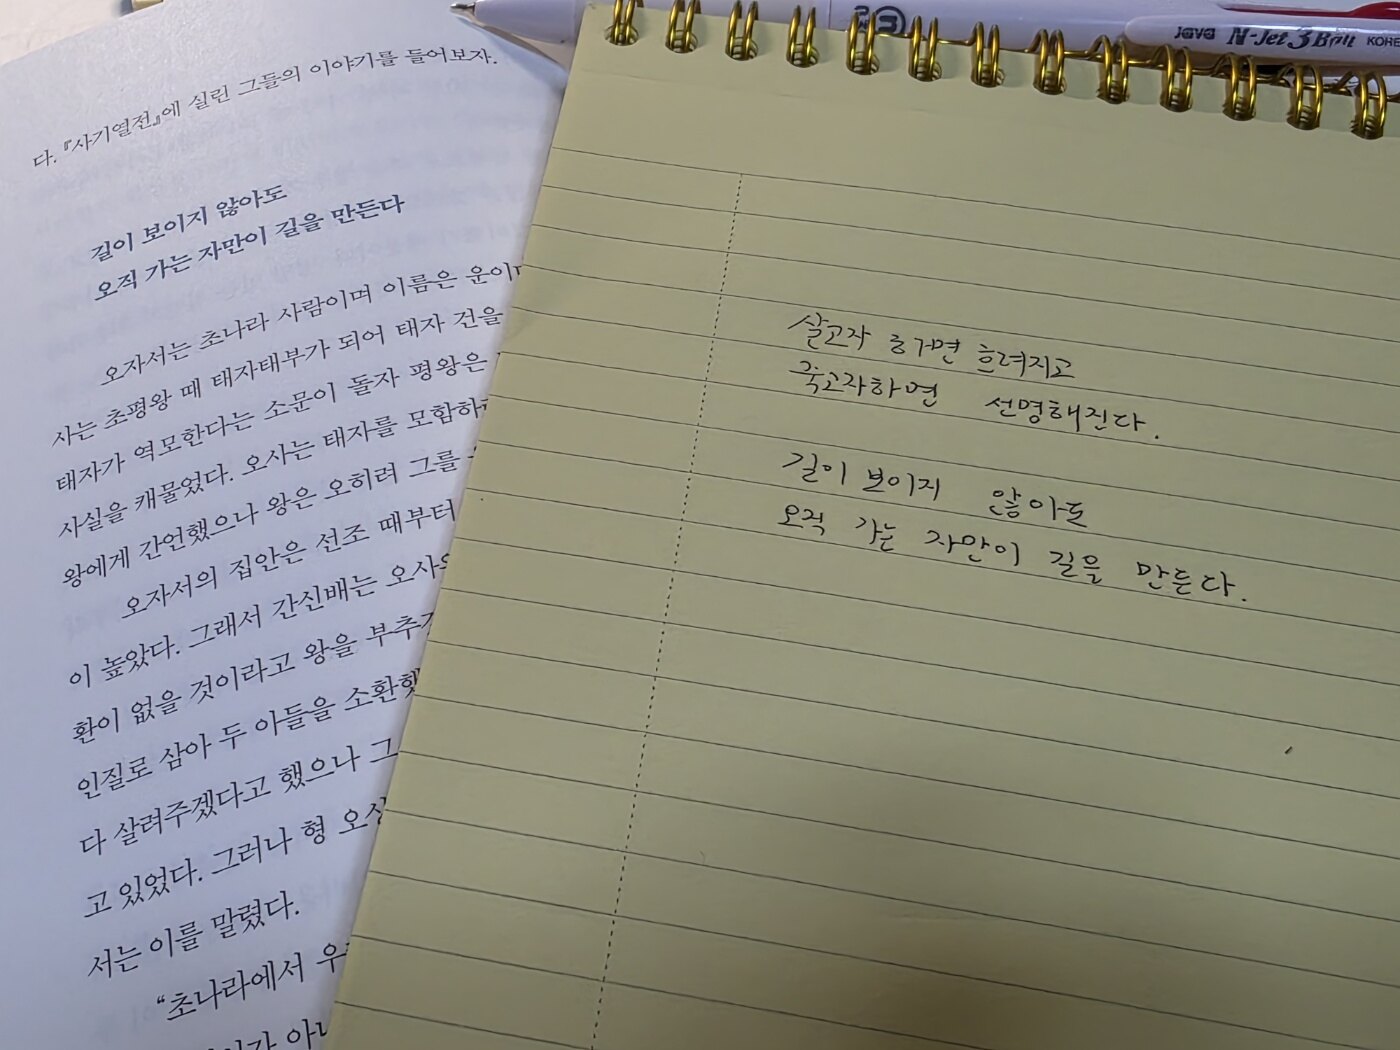 다. 『사기열전』에 실린 그들의 이야기를 들어보자.
길이 보이지 않아도
오직 가는 자만이 길을 만든다
오자서는 초나라 사람이며 이름은 운이
사는 초평왕 때 태자태부가 되어 태자 건을
태자가 역모한다는 소문이 돌자 평왕은
사실을 캐물었다. 오사는 태자를 모함하
왕에게 간언했으나 왕은 오히려 그를
오자서의 집안은 선조 때부터
이 높았다. 그래서 간신배는 오사와
환이 없을 것이라고 왕을 부추
인질로 삼아 두 아들을 소환했
다 살려주겠다고 했으나 그
고 있었다. 그러나 형 오상
서는 이를 말렸다.
“초나라에서 우
가 아니
살고자 하면 흐려지고
죽고자하면 선명해진다.
길이 보이지 않아도
오직 가는 자만이 길을 만든다.
Java N-Jet 3 Ball KORE